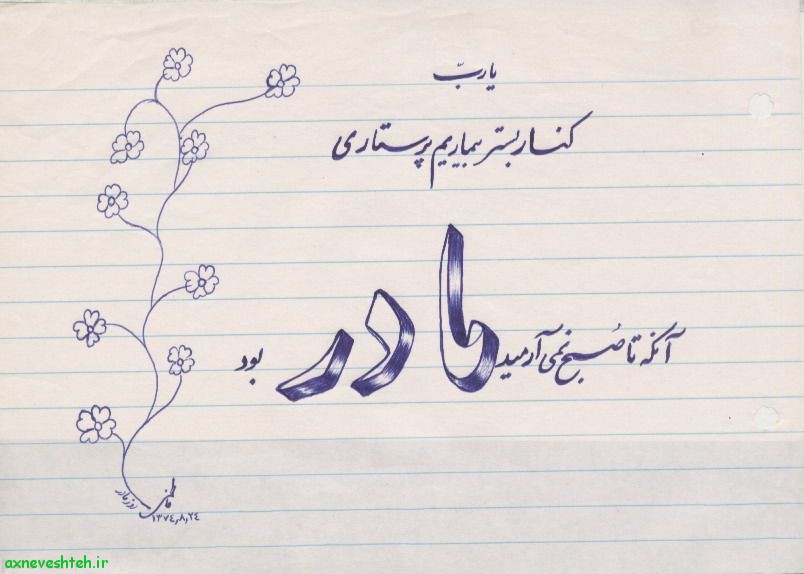 یا ربّ
کنار بستر بیماریم پرستاری
آنکه تا صُبح نمی آرمید مادر بود
فاطمی
روز مادر
۱۳۷۴٫۸٫۲۴
axneveshteh.ir